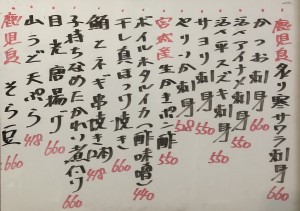 鹿児島 名り寒サワラ刺身 660
かつお刺身 660
活〆アイナメ刺身 660
活〆平スズキ刺身 550
サヨリ刺身 550
やりいか刺身 508
宮城産生かきポン酢 550
ボイルホタルイカ(酢味噌) 440
干し真ほっけ焼き 660
鮪とネギ串焼き(2本) 418
子持ちなめたかれい煮付け 660
目光唐揚げ 660
山うど天ぷら 418
鹿児島 そら豆 660